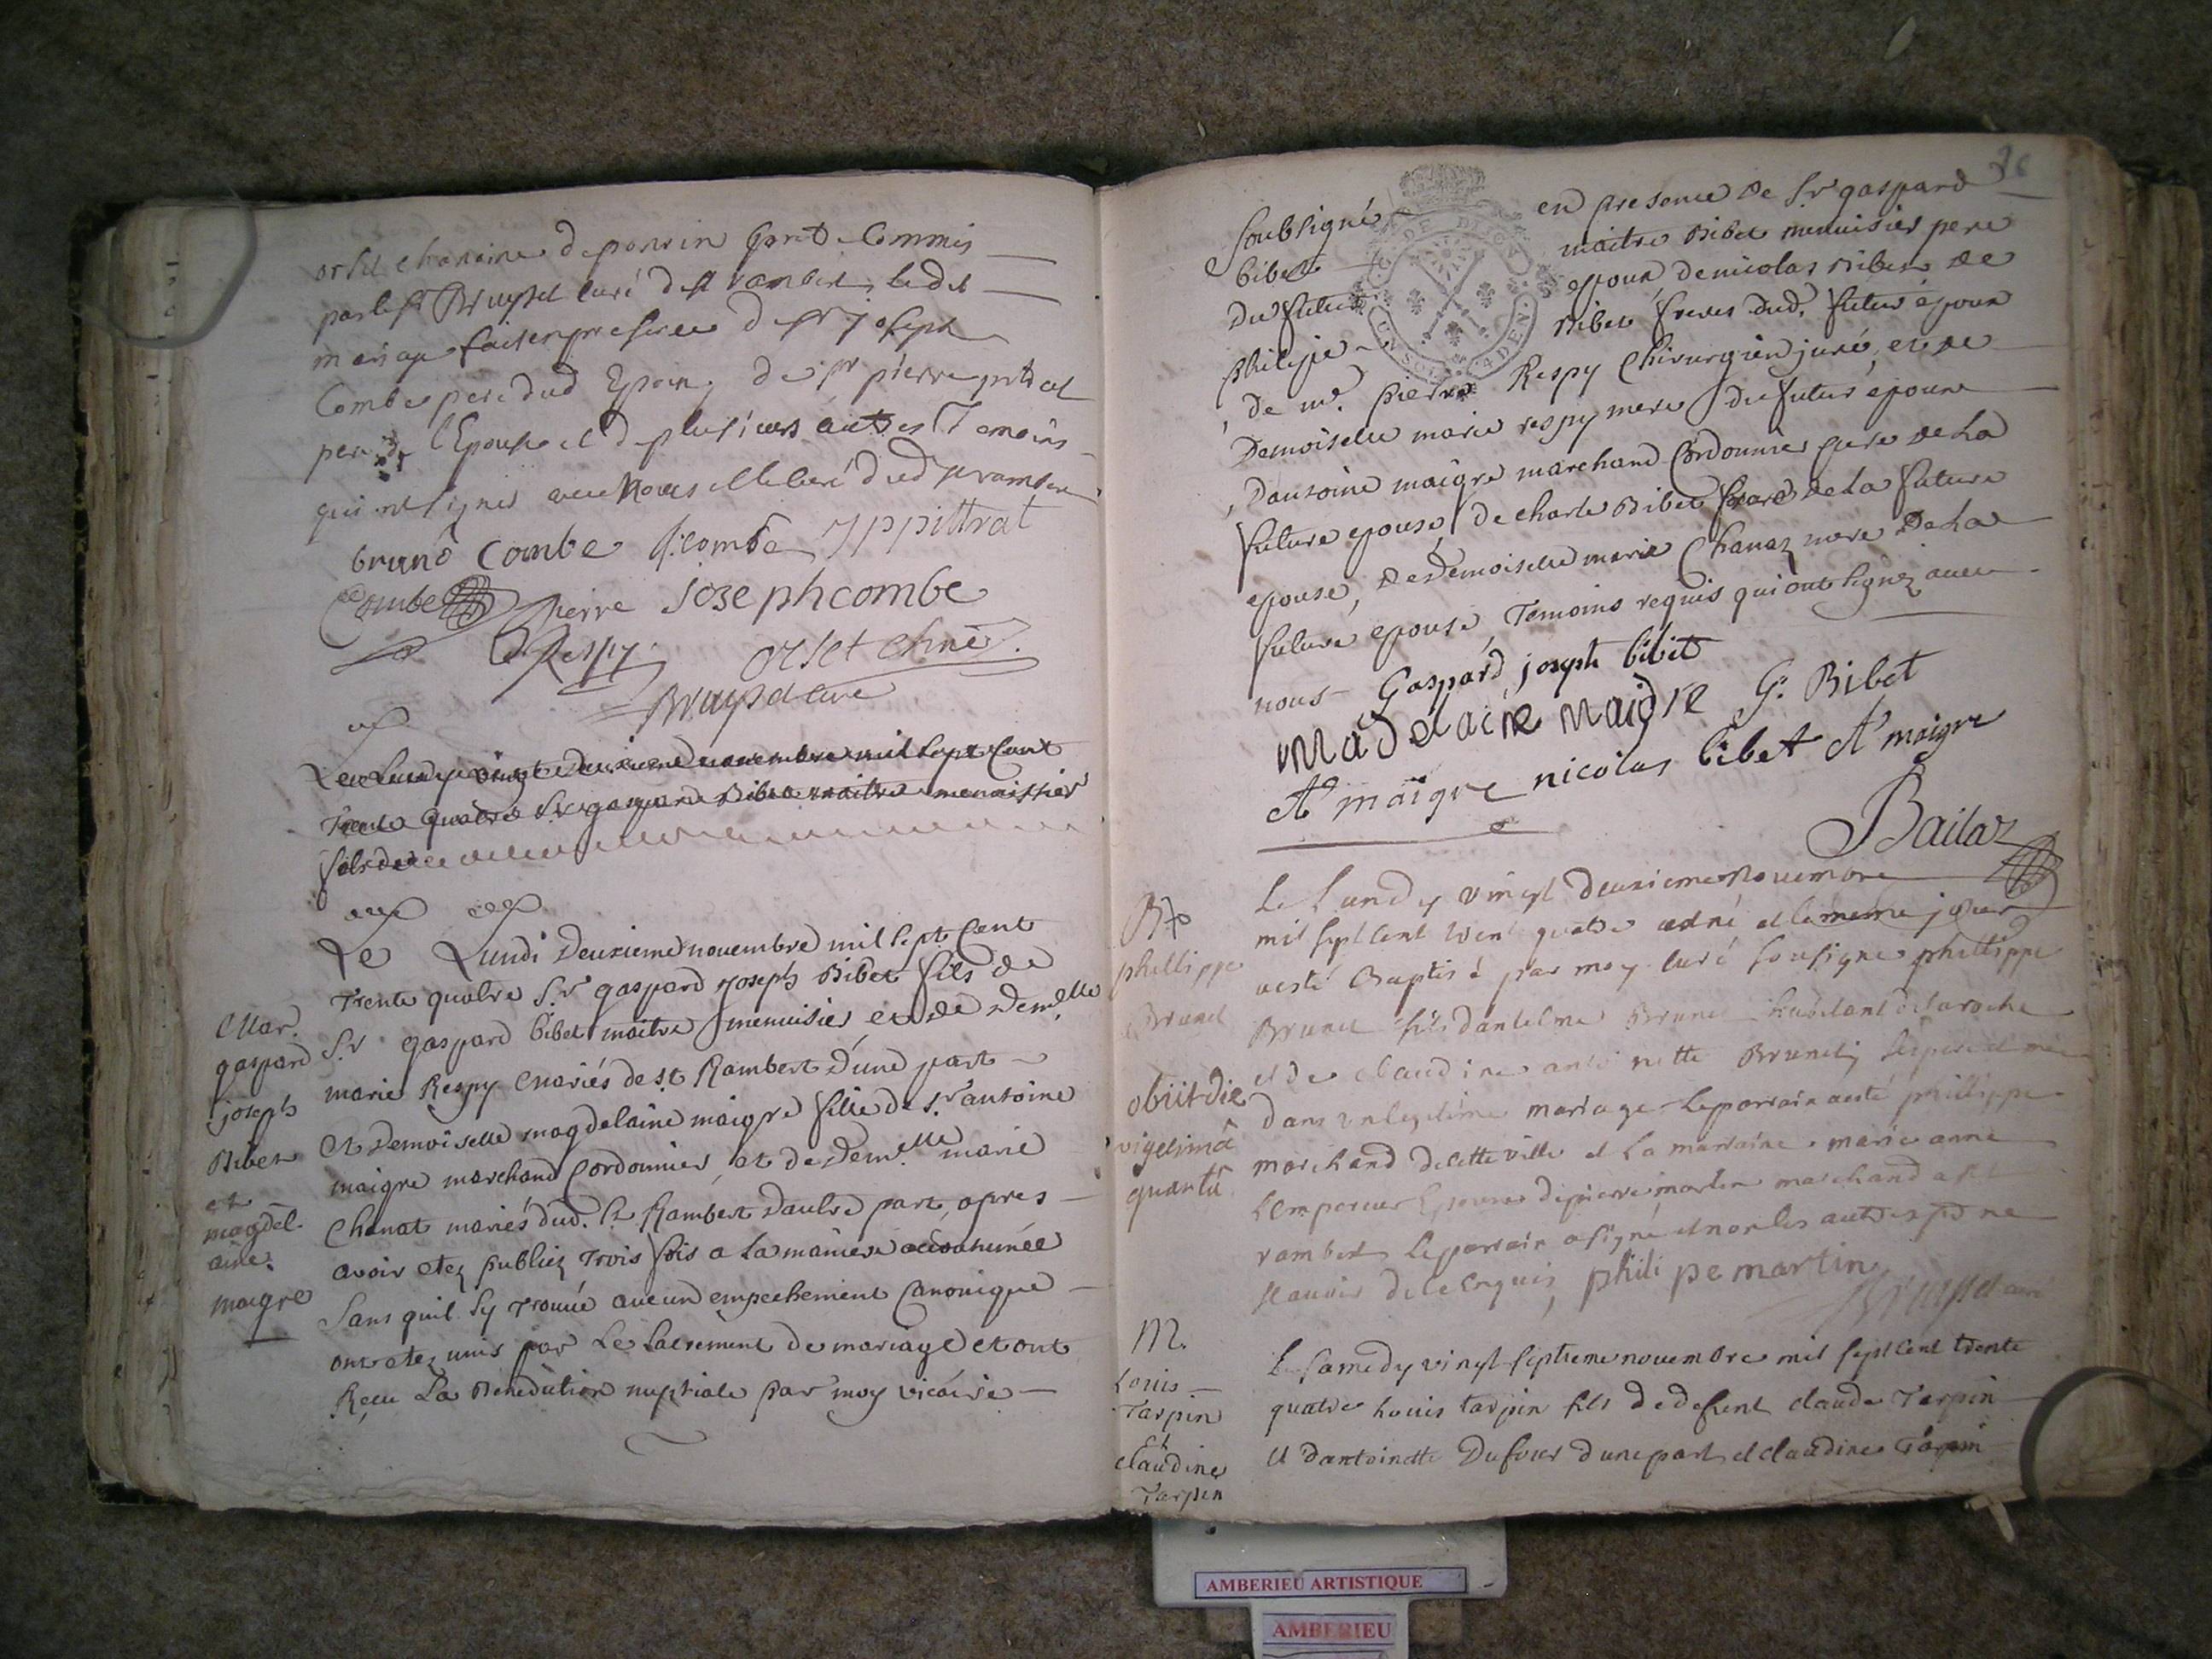 orset chanoine de poncin Commis
par le Sr Bruyset curé de st rambert, ledit
mariage fait en presence de Sr joseph
Combe pere dud Epoux, de Sr pierre pittrat
pere de l'Epouse et de plusieurs autres Temoins
qui ont signés avec Nous et le Curé dud st rambert
bruno Combe f. combe J p pittrat
Combe pierre Josephcombe
Respy orset chne
Bruyset cure
Le Lundy vingt deuxieme novembre mil Sept Cent
Trente Quatre Sr gaspard Bibet maitre menuissier
fils de
Le Lundi Deuxieme novembre mil Sept Cent
Trente quatre S.r gaspard joseph Bibet fils de
S.r gaspard bibet maitre menuisier et de Dem.lle
marie Respy mariés de st Rambert d'une part
et Demoiselle magdelaine maigre fille de S.r antoine
maigre marchand Cordonnier et de dem.lle marie
Chanat mariés dud. st Rambert dautre part, apres
avoir etez publiez Trois fois a la maniere accoutumée
Sans quil Sy Trouvé aucun empechement Canonique
ont etez unis par Le Sacrement de mariage et ont
Reçu La Benediction nuptiale par moy vicaire
Mar.
gaspard
joseph
Bibet
et
magdel
aine
maigre
26
Soubsigné en presence de S.r gaspard
bibet maitre Bibet menuisier pere
Du futur epoux de nicolas Bibet de
philipe Bibet freres dud. futur epoux
de mr. pierre Respy Chirurgien juré, et de
Demoiselle marie respy mere du futur epoux
, Dantoine maigre marchand Cordonnier pere de La
future epouse, de charle Bibet de La future
epouse, de Demoiselle marie Chanaz mere de La
future epouse Temoins requis qui ont signez avec
nous Gaspard joseph bibet
Madelaine Maigre G. Bibet
At maigre nicolas bibet At maigre
Bailaz
Bte
phillippe
Brunet
obiit die
vigesima
quarta
Le Lundy vingt Deuxieme Novembre
mil sept Cent trent quatre est né et le meme jour
a esté Baptisé par moy curé sousigné phillippe
Brunet fils dantelme Brunet habitant de la roche
et de claudine antoinette Brunet ses pere et mere
dans un legitime mariage Le parrain a esté phillippe
marchand de cette ville et La marraine marie anne
Lempereur Epouse de pierre martin marchand a st
rambert Le parrain a signé et non les autres pr ne
scavoir de ce Enquis, phili pe martin
Bruyset curé
M.
Louis
Tarpin
et
claudine
Tarpin
Le samedy vingt septieme novembre mil sept Cent trente
quatre Louis tarpin fils de defunt claude Tarpin
et dantoinette Dufour dune part et claudine Tarpin
AMBERIEU ARTISTIQUE
AMBERIEU